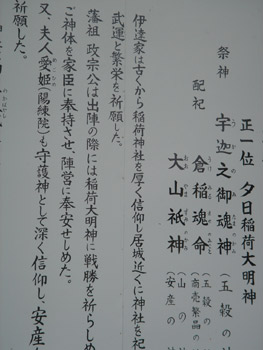 正一位 夕日稲荷大明神
祭神
宇迦之御魂神（五穀の
配祀
倉稲魂命（五穀の
商売繁昌の
大山祇神（山の
（安産の
伊達家は古くから稲荷神社を厚く信仰し居城近くに神社を祀
武運と繁栄を祈願した。
藩祖 政宗公は出陣の際には稲荷大明神に戦勝を祈らしめ
ご神体を家臣に奉持させ、陣営に奉安せしめた。
又、夫人愛姫（陽徳院）も守護神として深く信仰し、安産
祈願した。